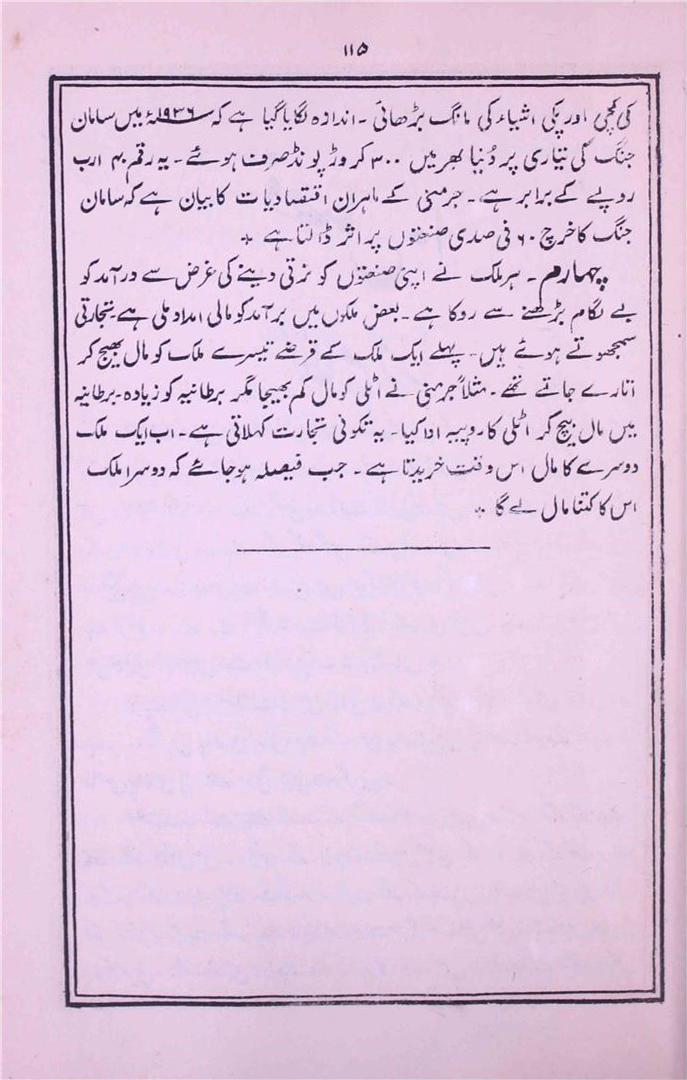 ۱۱۵
کی کچی اور پکی اشیاء کی مانگ بڑھائی ۔ اندازہ لگایا گیا ہے کہ ۱۹۳۶ء میں سامان
جنگ کی تیاری پر دُنیا بھر میں ۳۰۰ کروڑ پونڈ صرف ہوئے ۔ یہ رقم ۴۰ ارب
روپے کے برابر ہے ۔ جرمنی کے ماہران اقتصادیات کا بیان ہے کہ سامان
جنگ کا خرچ ۶۰ فی صدی صنعتوں پر اثر ڈالتا ہے ٭
چہارم ۔ ہر ملک نے اپنی صنعتوں کو ترقی دینے کی غرض سے درآمد کو
بے لگام بڑھنے سے روکا ہے ۔ بعض ملکوں میں برآمد کو مالی امداد ملی ہے ۔ تجارتی
سمجھوتے ہوئے ہیں ۔ پہلے ایک ملک کے قرضے تیسرے ملک کو مال بھیج کر
اتارے جاتے تھے ۔ مثلاً جرمنی نے اٹلی کو مال کم بھیجا مگر برطانیہ کو زیادہ ۔ برطانیہ
میں مال بیچ کر اٹلی کا روپیہ ادا کیا ۔ یہ تکونی تجارت کہلاتی ہے ۔ اب ایک ملک
دوسرے کا مال اس وقت خریدتا ہے ۔ جب فیصلہ ہو جائے کہ دوسرا ملک
اس کا کتنا مال لے گا ٭